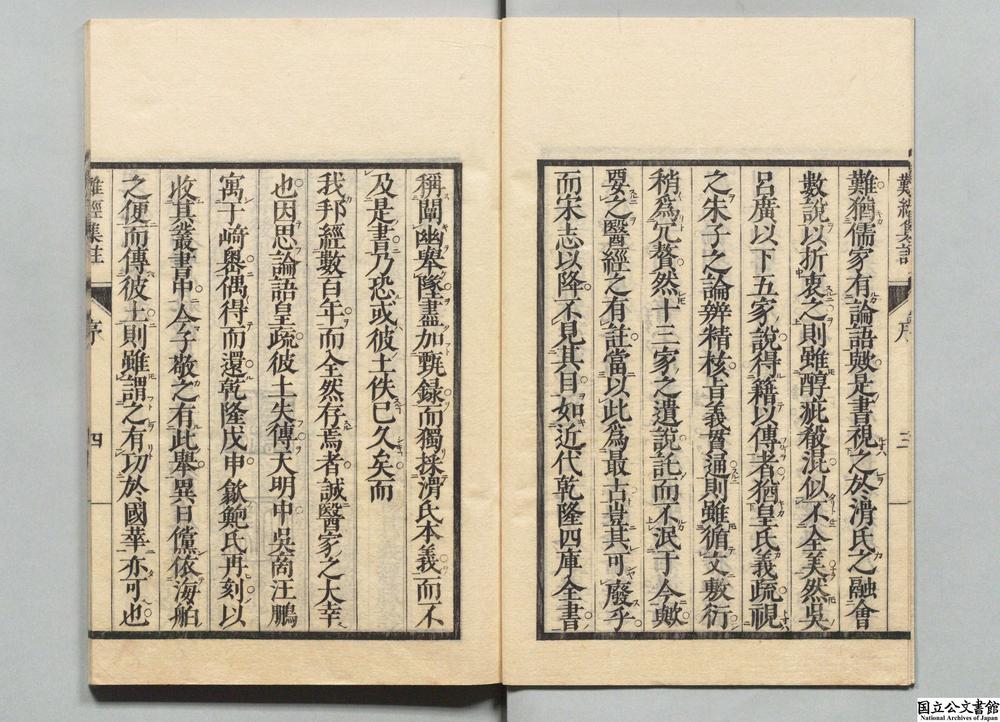 難經集註
序
三
難猶儒家有論語歟是書視之於滑氏之融會
數說以折衷之則雖醇疵殽混似不全美然吳
呂廣以下五家說得籍以傳者猶皇氏義疏視
之朱子之論辨精核旨義貫通則雖循文敷衍
稍爲冗贅然十三家之遺說託而不泯于今歟
要之醫經之有註當以此爲最古豈其可廢乎
而宋志以降不見其目如近代乾隆四庫全書
稱闡幽舉墜盡加甄録而獨採滑氏本義而不
及是書乃恐或彼土佚已久矣而
我邦經數百年而全然存焉者誠醫家之大幸
也因思論語皇疏彼土失傳天明中吳商汪鵬
寓于崎嶴偶得而還乾隆戊申歙鮑氏再刻以
收其叢書中今子敬之有此舉異日儻依海舶
之便而傳彼土則雖謂之有功於國華亦可也
難經集註
序
四
国立公文書館
National Archives of Japan